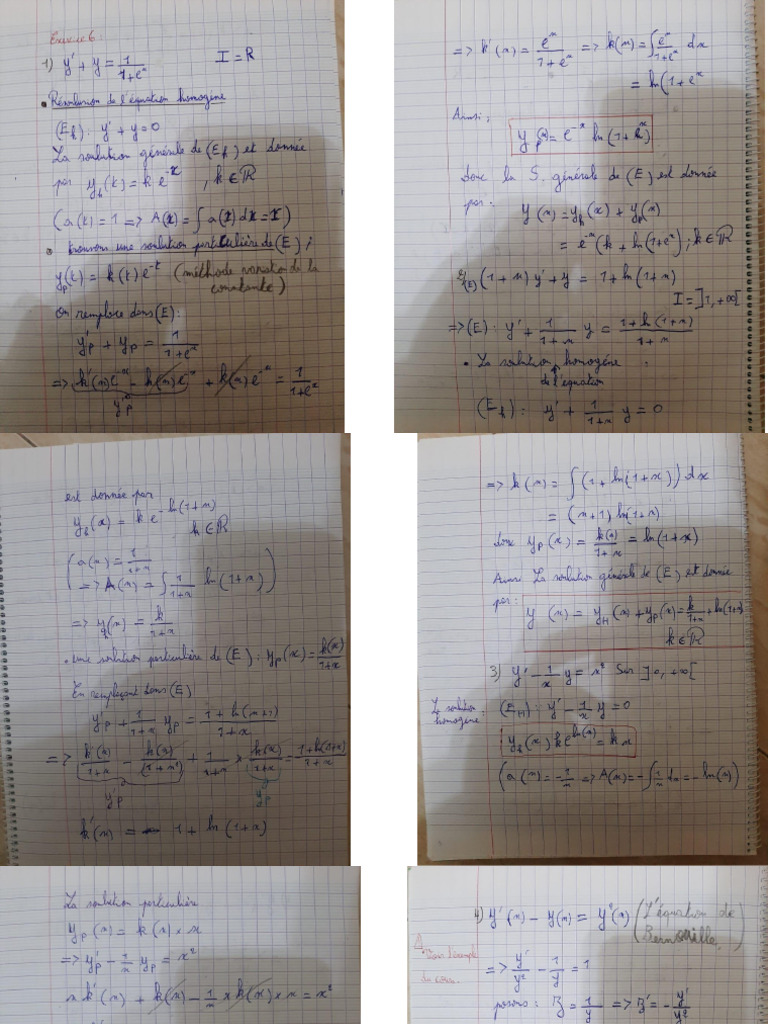 Exercice 6:
1) y' + y = 1/(1+e^x) I = R
• Résolution de l'équation homogène
(E_h): y' + y = 0
La solution générale de (E_h) est donnée
par y_h(t) = k e^-x , k ∈ ℝ
(a(t) = 1 => A(x) = ∫ a(x) dx = x)
• trouvons une solution particulière de (E);
y_p(t) = k(t) e^-t (méthode variation de la
constante)
On remplace dans (E):
y'_p + y_p = 1/(1+e^x)
=> k'(x)e^-x - k(x)e^-x + k(x)e^-x = 1/(1+e^x)
y'_p
=> k'(x) = e^x/(1+e^x) => k(x) = ∫ e^x/(1+e^x) dx
= ln(1+e^x
Ainsi,
y_p(x) = e^-x ln(1+e^x)
donc la S. générale de (E) est donnée
par: y(x) = y_h(x) + y_p(x)
= e^-x (k + ln(1+e^x) ; k ∈ ℝ
2/(E) (1+x) y' + y = 1 + ln(1+x)
I = ]1, +∞[
=> (E): y' + 1/(1+x) y = (1+ln(1+x))/(1+x)
• La solution homogène
de l'équation
(E_h): y' + 1/(1+x) y = 0
est donnée par
y_h(x) = k e^-ln(1+x)
k ∈ ℝ
(a(x) = 1/(1+x)
=> A(x) = ∫ 1/(1+x) ln(1+x))
=> y_h(x) = k/(1+x)
• une solution particulière de (E): y_p(x) = k(x)/(1+x)
En remplaçant dans (E)
y'_p + 1/(1+x) y_p = (1+ln(x+1))/(1+x)
=> k'(x)/(1+x) - k(x)/(1+x)² + 1/(1+x) × k(x)/(1+x) = (1+ln(1+x))/(1+x)
y'_p y_p
k'(x) = 1 + ln(1+x)
=> k(x) = ∫ (1 + ln(1+x)) dx
= (x+1) ln(1+x)
donc y_p(x) = k(x)/(1+x) = ln(1+x)
Ainsi La solution générale de (E) est donnée
par: y(x) = y_H(x) + y_p(x) = k/(1+x) + ln(1+x)
k ∈ ℝ
3) y' - 1/x y = x² Sur ]0, +∞[
La solution homogène: (E_H): y' - 1/x y = 0
y_h(x) k e^ln(x) = k x
(a(x) = -1/x => A(x) = -∫ 1/x dx = -ln(x))
La solution particulière
y_p(x) = k(x) × x
=> y'_p - 1/x y_p = x²
x k'(x) + k(x) - 1/x × k(x) × x = x²
4) y'(x) - y(x) = y²(x) (L'équation de
Bernouille.
=> y'/y² - 1/y = 1
posons: z = 1/y => z' = -y'/y²